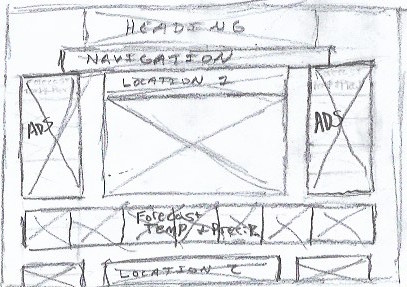 HEADING
NAVIGATION
LOCATION 1
ADS
ADS
Forecast
Temp + Precip
LOCATION 2